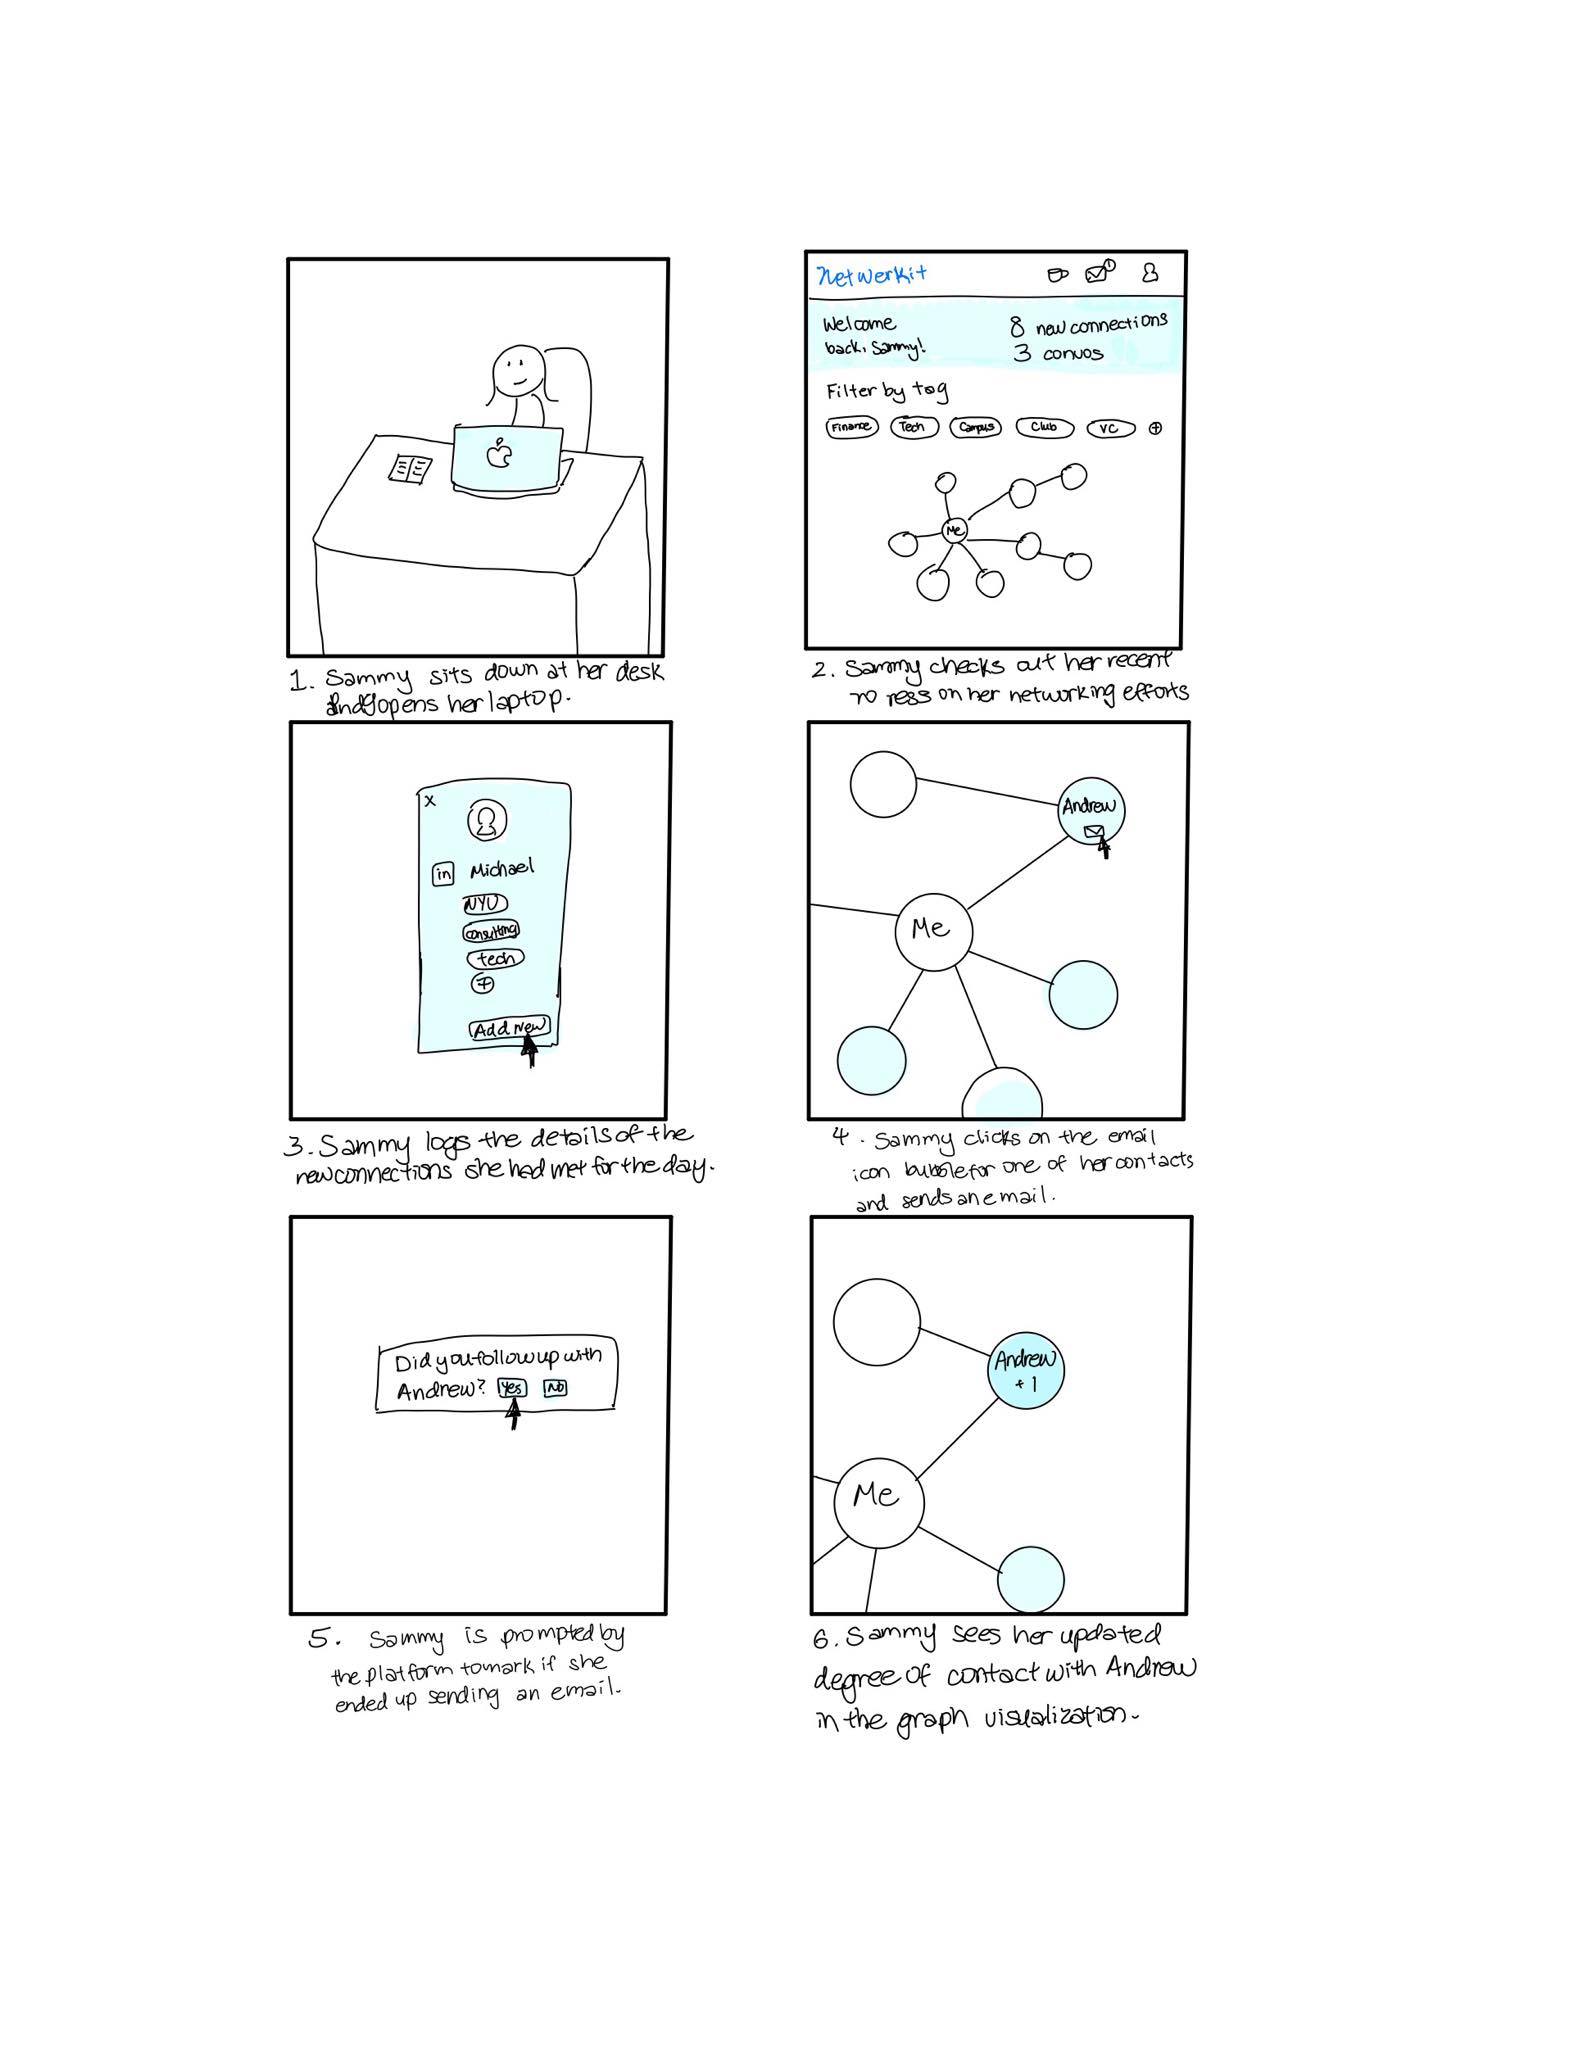 1. Sammy sits down at her desk
and opens her laptop.
Netwerkit
1
Welcome
back, Sammy!
8 new connections
3 convos
Filter by tag
Finance Tech Campus Club VC +
Me
2. Sammy checks out her recent
ress on her networking efforts
x
in Michael
NYU
consulting
tech
+
Add New
3. Sammy logs the details of the
new connections she had met for the day.
Andrew
Me
4. Sammy clicks on the email
icon bubble for one of her contacts
and sends an email.
Did you follow up with
Andrew? Yes No
5. Sammy is prompted by
the platform to mark if she
ended up sending an email.
Andrew
+1
Me
6. Sammy sees her updated
degree of contact with Andrew
in the graph visualization.